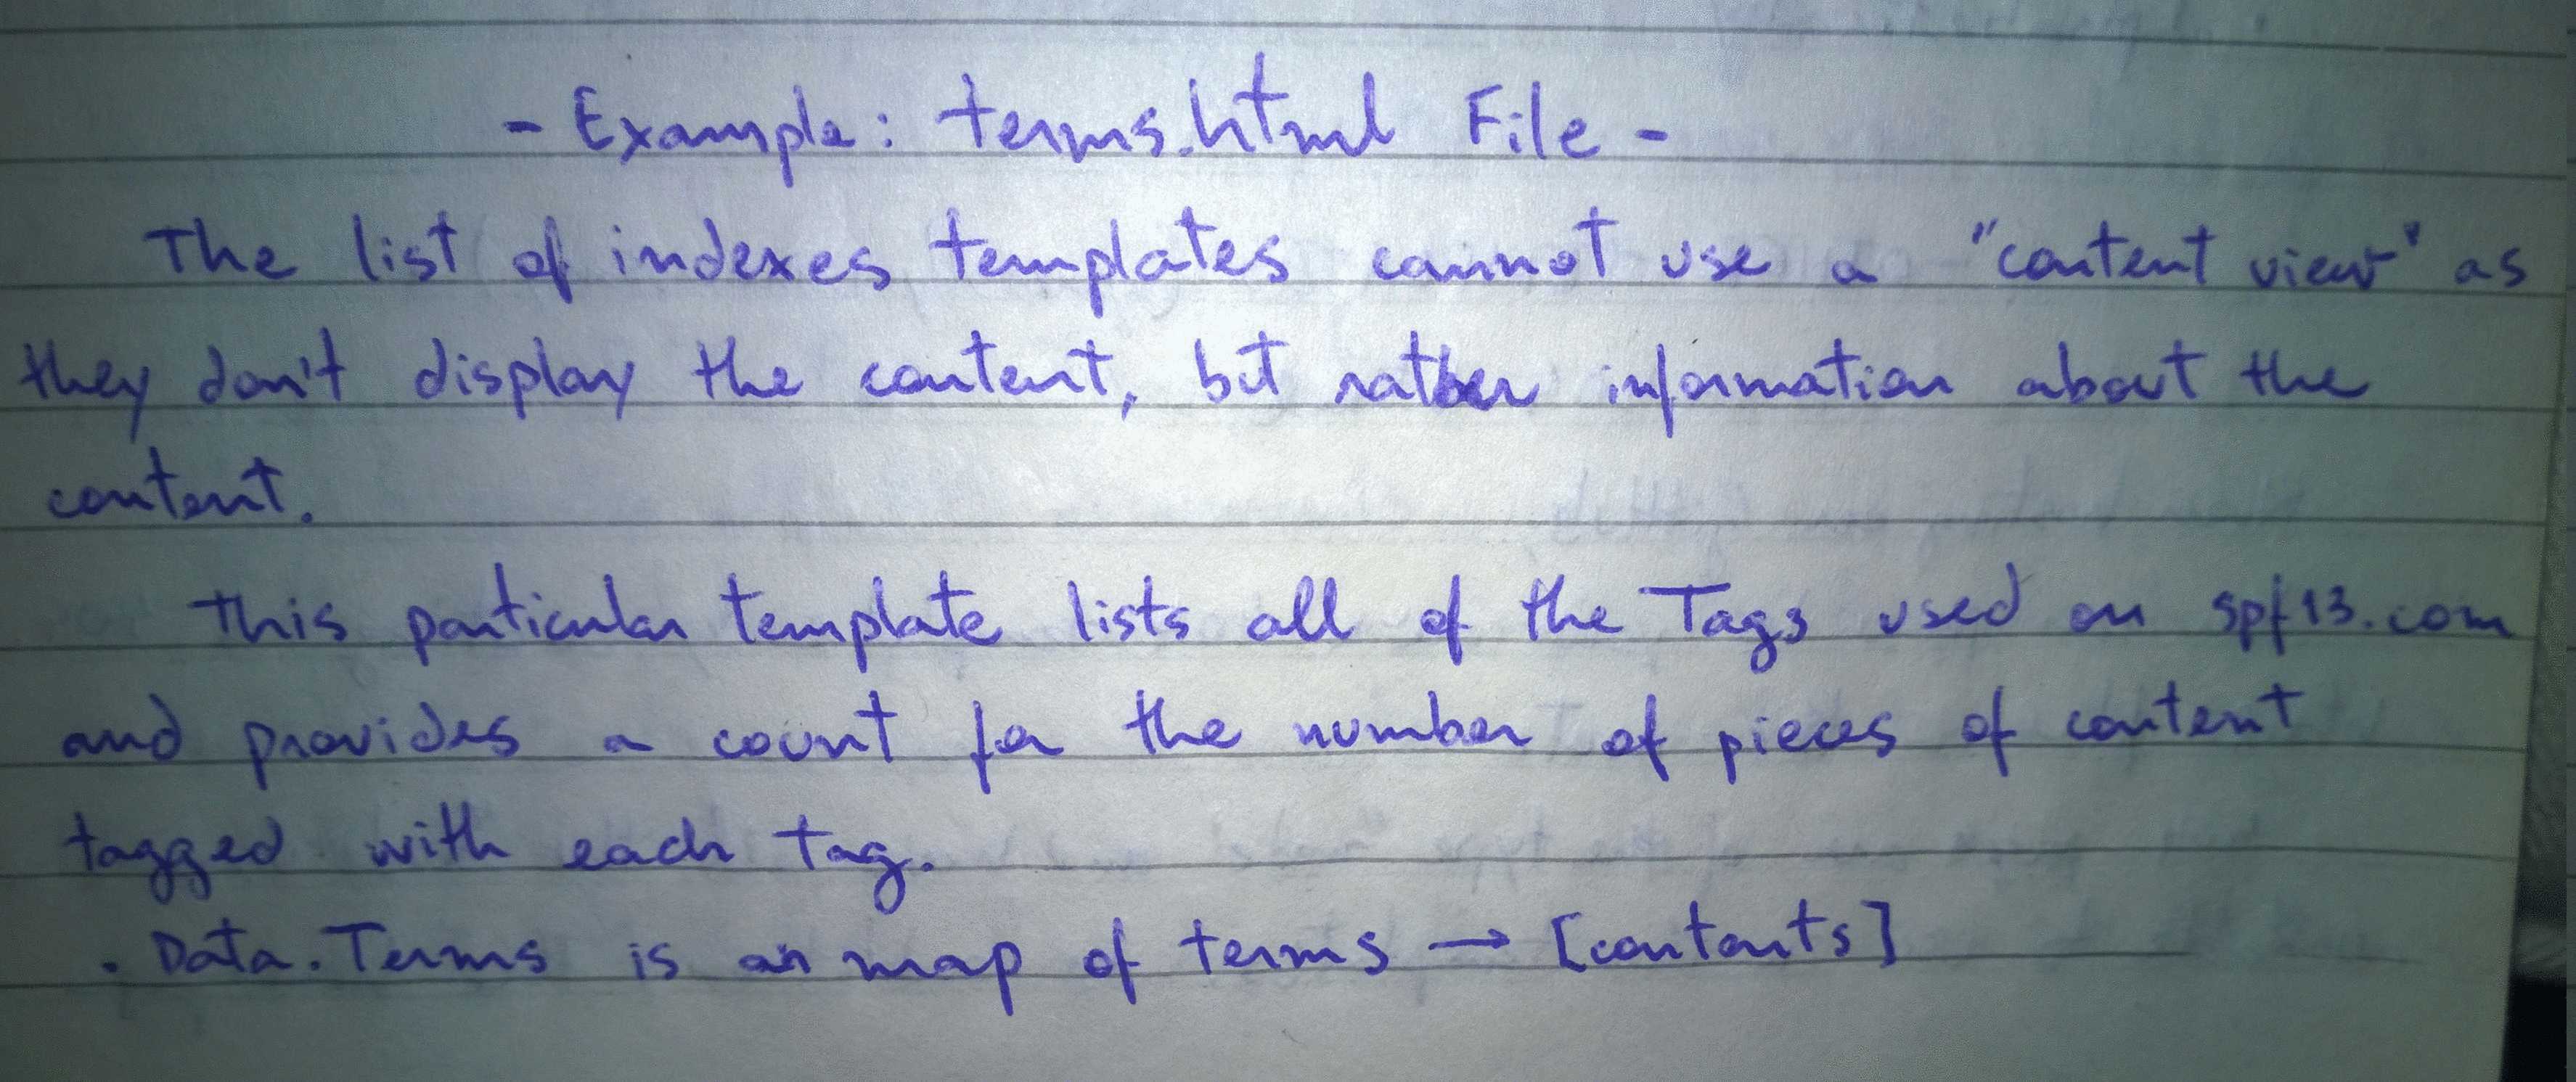 - Example: terms.html File -
The list of indexes templates cannot use a "content view" as
they don't display the content, but rather information about the
content.
This particular template lists all of the Tags used on spf13.com
and provides a count for the number of pieces of content
tagged with each tag.
.Data.Terms is an map of terms → [contents]